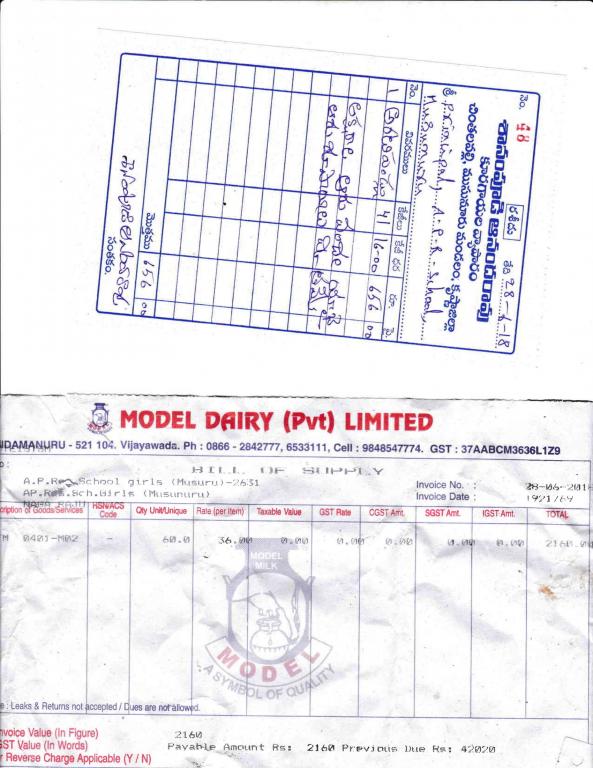 నెం. 48
రశీదు
తేది 28-6-18
కూరగాయల వ్యాపారం
చింతలవల్లి, ముసునూరు మండలం, కృష్ణాజిల్లా
శ్రీ Principal, A.P.R. School,
Musunuru
నెం. వివరములు కేజీలు కేజీ ధర రూ. పై.
1 41 16-00 656 00
మొత్తము 656 00
సంతకం.
MODEL DAIRY (Pvt) LIMITED
NDAMANURU - 521 104. Vijayawada. Ph : 0866 - 2842777, 6533111, Cell : 9848547774. GST : 37AABCM3636L1Z9
BILL OF SUPPLY
A.P.Res School girls (Musuru)-2631
AP.Res.Sch.Girls (Musunuru)
Invoice No. : 28-06-2018
Invoice Date : 1921/69
cription of Goods/Services HSN/ACS Code Qty Unit/Unique Rate (per item) Taxable Value GST Rate CGST Amt. SGST Amt. IGST Amt. TOTAL
TM 0401-M02 - 60.0 36.00 0.00 0.00 0.00 0.00 0.00 2160.00
MODEL MILK
MODEL
A SYMBOL OF QUALITY
e : Leaks & Returns not accepted / Dues are not allowed.
nvoice Value (In Figure) 2160
GST Value (In Words) Payable Amount Rs: 2160 Previous Due Rs: 42020
r Reverse Charge Applicable (Y / N)